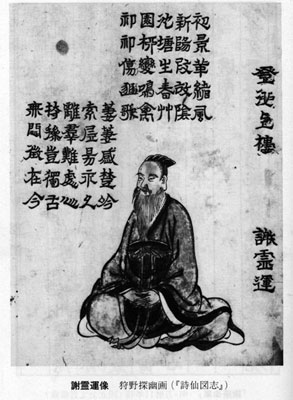 登池上樓
謝靈運
初景革緒風
新陽改故陰
池塘生春艸
園柳變鳴禽
祁祁傷豳歌
萋萋感楚吟
索居易永久
離羣難處心
持操豈獨古
無悶徵在今
謝霊運像 狩野探幽画(『詩仙図志』)